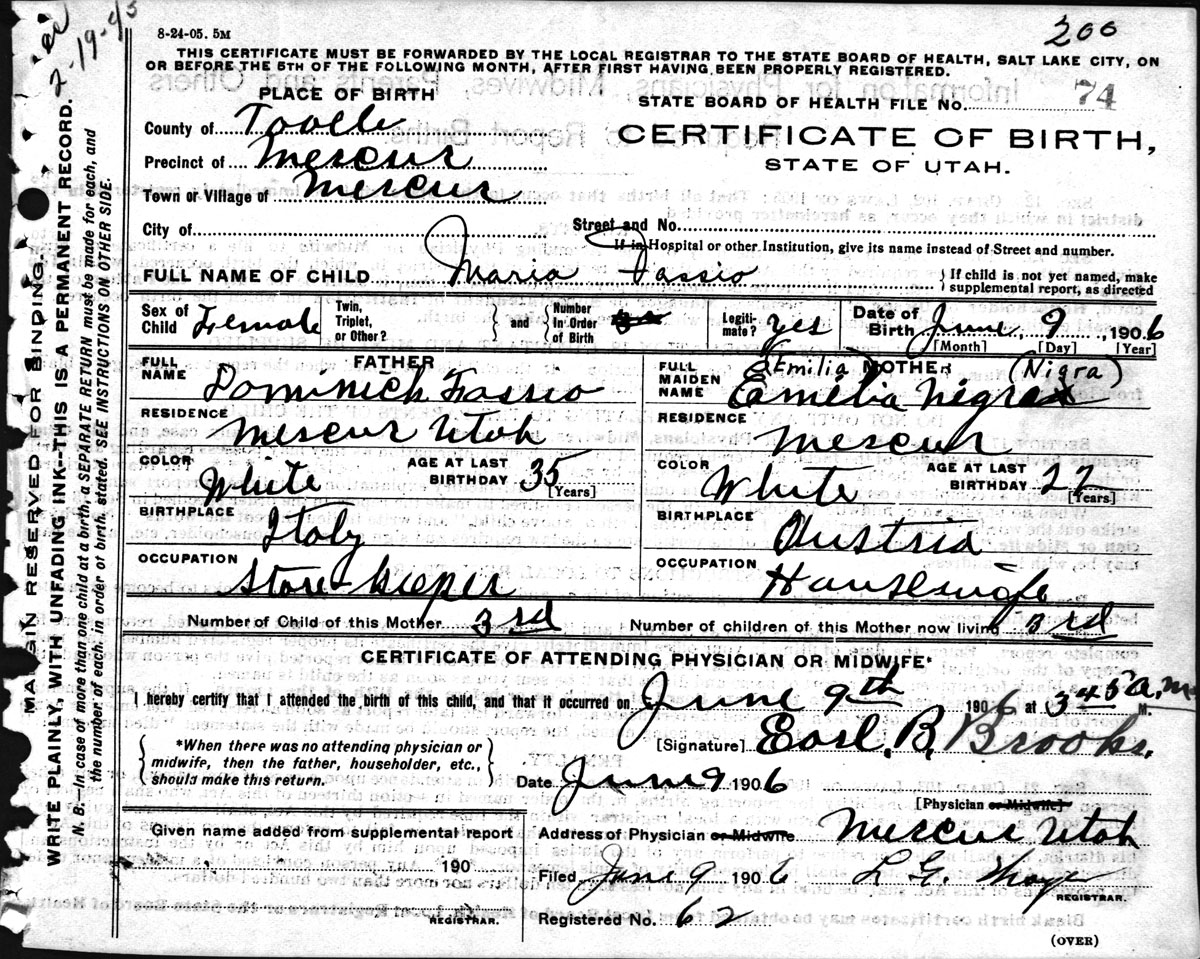 8-24-05. 5M
200
THIS CERTIFICATE MUST BE FORWARDED BY THE LOCAL REGISTRAR TO THE STATE BOARD OF HEALTH, SALT LAKE CITY, ON
OR BEFORE THE 5TH OF THE FOLLOWING MONTH, AFTER FIRST HAVING BEEN PROPERLY REGISTERED.
PLACE OF BIRTH
STATE BOARD OF HEALTH FILE No. 74
County of Tooele
CERTIFICATE OF BIRTH,
Precinct of Mercur
STATE OF UTAH.
Town or Village of Mercur
City of Street and No.
If in Hospital or other Institution, give its name instead of Street and number.
FULL NAME OF CHILD Maria Fassio { If child is not yet named, make
supplemental report, as directed
Sex of Child Female Twin, Triplet, or Other? } and { Number In Order of Birth Legiti-mate? yes Date of Birth June 9, 1906
[Month] [Day] [Year]
FATHER
FULL NAME Dominick Fassio
(Emilia) MOTHER (Nigra)
FULL MAIDEN NAME Emelia Negra
RESIDENCE Mercur Utah
RESIDENCE Mercur
COLOR White AGE AT LAST BIRTHDAY 35 [Years]
COLOR White AGE AT LAST BIRTHDAY 27 [Years]
BIRTHPLACE Italy
BIRTHPLACE Austria
OCCUPATION Store keeper
OCCUPATION Housewife
Number of Child of this Mother 3rd Number of children of this Mother now living 3rd
CERTIFICATE OF ATTENDING PHYSICIAN OR MIDWIFE*
I hereby certify that I attended the birth of this child, and that it occurred on June 9th 1906 at 345 a.m M.
{ *When there was no attending physician or
midwife, then the father, householder, etc.,
should make this return. }
[Signature] Earl. B. Brooks.
Date June 9 1906
[Physician or Midwife]
Given name added from supplemental report
190
REGISTRAR.
Address of Physician or Midwife Mercur Utah
Filed June 9 1906 L G.
REGISTRAR.
Registered No. 62
(OVER)
MARGIN RESERVED FOR BINDING.
WRITE PLAINLY, WITH UNFADING INK--THIS IS A PERMANENT RECORD.
N. B.—In case of more than one child at a birth, a SEPARATE RETURN must be made for each, and
the number of each, in order of birth, stated. SEE INSTRUCTIONS ON OTHER SIDE.
2-19-43